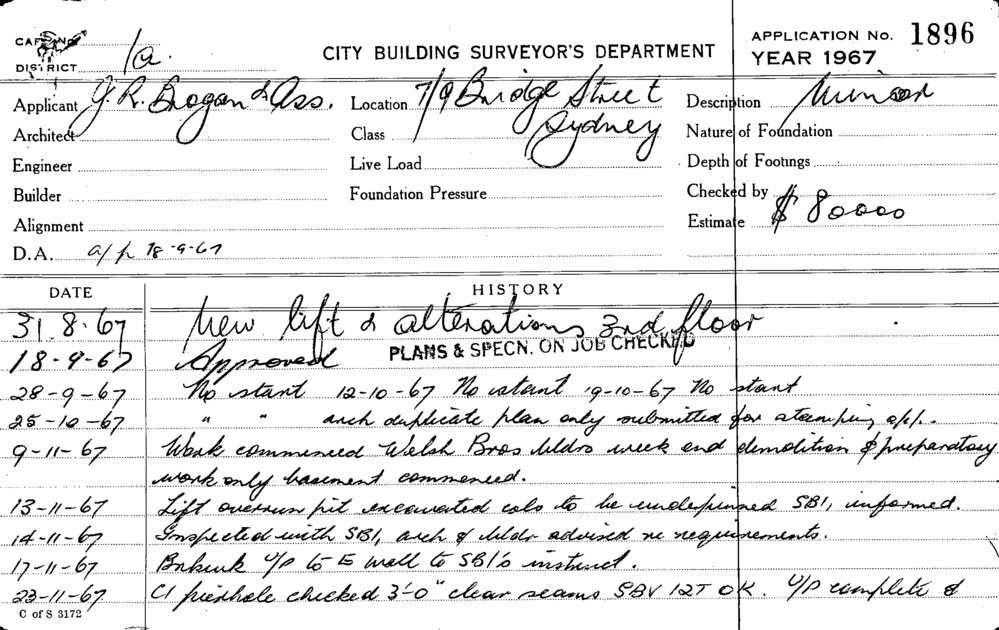 CITY BUILDING SURVEYOR'S DEPARTMENT
APPLICATION No. 1896
YEAR 1967
DISTRICT 1a.
Applicant J. R. Brogan & Ass.
Location 7/9 Bridge Street
Sydney
Description Minor
Architect
Class
Nature of Foundation
Engineer
Live Load
Depth of Footings
Builder
Foundation Pressure
Checked by
Alignment
Estimate $ 80000
D.A. a/p 18-9-67
DATE HISTORY
31.8.67 New lift & alterations 3rd floor
18-9-67 Approved PLANS & SPECN. ON JOB CHECKED
28-9-67 No start 12-10-67 No start 19-10-67 No start
25-10-67 " " arch duplicate plan only submitted for stamping
9-11-67 Work commenced Welsh Bros bldrs week end demolition & preparatory
work only basement commenced.
13-11-67 Lift overrun pit excavated cols to be underpinned SBI, informed.
14-11-67 Inspected with SBI, arch & bldr advised re requirements.
17-11-67 U/P to E wall to SBI's instruct.
23-11-67 C1 pierhole checked 3'-0" clear seams SBV 12T OK. U/P complete &
C of S 3172